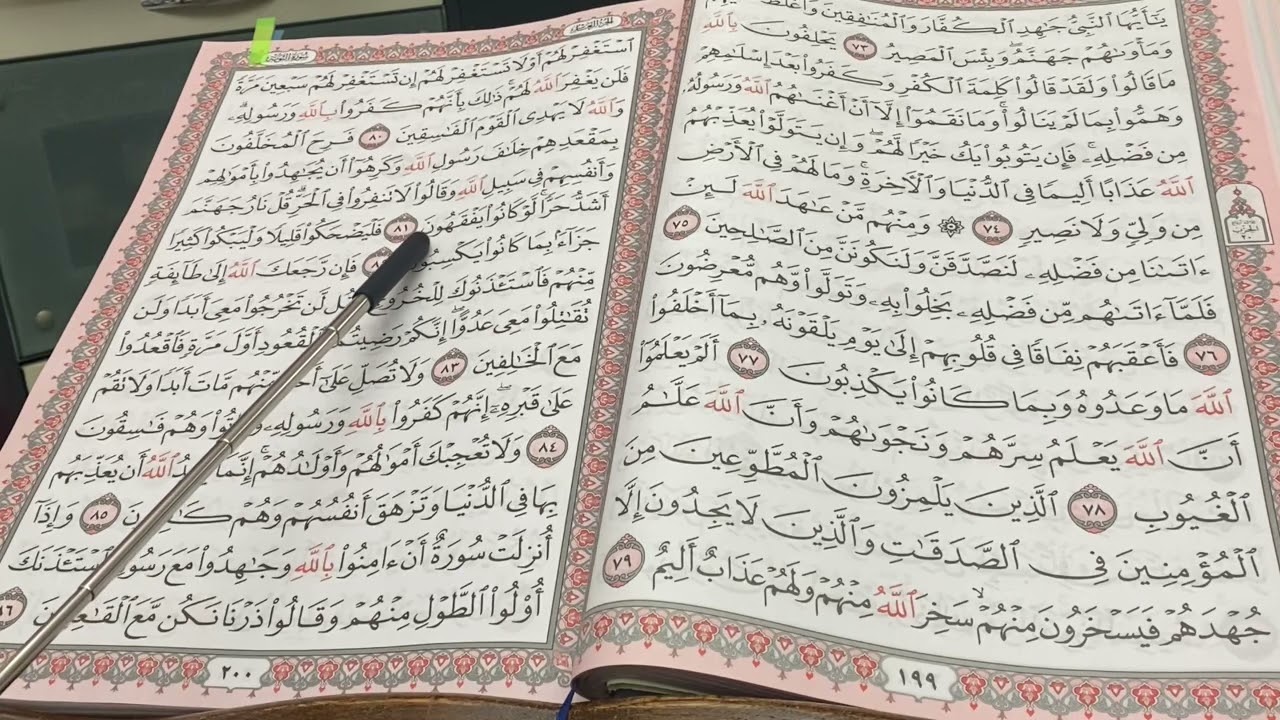 يَـٰٓأَيُّهَا ٱلنَّبِىُّ جَـٰهِدِ ٱلْكُفَّارَ وَٱلْمُنَـٰفِقِينَ وَٱغْلُظْ
وَمَأْوَىٰهُمْ جَهَنَّمُ وَبِئْسَ ٱلْمَصِيرُ ٧٣ يَحْلِفُونَ بِٱللَّهِ
مَا قَالُوا۟ وَلَقَدْ قَالُوا۟ كَلِمَةَ ٱلْكُفْرِ وَكَفَرُوا۟ بَعْدَ إِسْلَـٰمِهِمْ
وَهَمُّوا۟ بِمَا لَمْ يَنَالُوا۟ ۚ وَمَا نَقَمُوٓا۟ إِلَّآ أَنْ أَغْنَىٰهُمُ ٱللَّهُ وَرَسُولُهُۥ
مِن فَضْلِهِۦ ۚ فَإِن يَتُوبُوا۟ يَكُ خَيْرًا لَّهُمْ ۖ وَإِن يَتَوَلَّوْا۟ يُعَذِّبْهُمُ
ٱللَّهُ عَذَابًا أَلِيمًا فِى ٱلدُّنْيَا وَٱلْـَٔاخِرَةِ ۚ وَمَا لَهُمْ فِى ٱلْأَرْضِ
مِن وَلِىٍّ وَلَا نَصِيرٍ ٧٤ ۞ وَمِنْهُم مَّنْ عَـٰهَدَ ٱللَّهَ لَئِنْ
ءَاتَىٰنَا مِن فَضْلِهِۦ لَنَصَّدَّقَنَّ وَلَنَكُونَنَّ مِنَ ٱلصَّـٰلِحِينَ ٧٥
فَلَمَّآ ءَاتَىٰهُم مِّن فَضْلِهِۦ بَخِلُوا۟ بِهِۦ وَتَوَلَّوا۟ وَّهُم مُّعْرِضُونَ
٧٦ فَأَعْقَبَهُمْ نِفَاقًا فِى قُلُوبِهِمْ إِلَىٰ يَوْمِ يَلْقَوْنَهُۥ بِمَآ أَخْلَفُوا۟
ٱللَّهَ مَا وَعَدُوهُ وَبِمَا كَانُوا۟ يَكْذِبُونَ ٧٧ أَلَمْ يَعْلَمُوٓا۟
أَنَّ ٱللَّهَ يَعْلَمُ سِرَّهُمْ وَنَجْوَىٰهُمْ وَأَنَّ ٱللَّهَ عَلَّـٰمُ
ٱلْغُيُوبِ ٧٨ ٱلَّذِينَ يَلْمِزُونَ ٱلْمُطَّوِّعِينَ مِنَ
ٱلْمُؤْمِنِينَ فِى ٱلصَّدَقَـٰتِ وَٱلَّذِينَ لَا يَجِدُونَ إِلَّا
جُهْدَهُمْ فَيَسْخَرُونَ مِنْهُمْ ۙ سَخِرَ ٱللَّهُ مِنْهُمْ وَلَهُمْ عَذَابٌ أَلِيمٌ ٧٩
١٩٩
ٱسْتَغْفِرْ لَهُمْ أَوْ لَا تَسْتَغْفِرْ لَهُمْ إِن تَسْتَغْفِرْ لَهُمْ سَبْعِينَ مَرَّةً
فَلَن يَغْفِرَ ٱللَّهُ لَهُمْ ۚ ذَٰلِكَ بِأَنَّهُمْ كَفَرُوا۟ بِٱللَّهِ وَرَسُولِهِۦ ۗ
وَٱللَّهُ لَا يَهْدِى ٱلْقَوْمَ ٱلْفَـٰسِقِينَ ٨٠ فَرِحَ ٱلْمُخَلَّفُونَ
بِمَقْعَدِهِمْ خِلَـٰفَ رَسُولِ ٱللَّهِ وَكَرِهُوٓا۟ أَن يُجَـٰهِدُوا۟ بِأَمْوَٰلِهِمْ
وَأَنفُسِهِمْ فِى سَبِيلِ ٱللَّهِ وَقَالُوا۟ لَا تَنفِرُوا۟ فِى ٱلْحَرِّ ۗ قُلْ نَارُ جَهَنَّمَ
أَشَدُّ حَرًّا ۚ لَّوْ كَانُوا۟ يَفْقَهُونَ ٨١ فَلْيَضْحَكُوا۟ قَلِيلًا وَلْيَبْكُوا۟ كَثِيرًا
جَزَآءًۢ بِمَا كَانُوا۟ فَإِن رَّجَعَكَ ٱللَّهُ إِلَىٰ طَآئِفَةٍ
مِّنْهُمْ فَٱسْتَـْٔذَنُوكَ لِلْخُرُوجِ لَّن تَخْرُجُوا۟ مَعِىَ أَبَدًا وَلَن
تُقَـٰتِلُوا۟ مَعِىَ عَدُوًّا ۖ إِنَّكُمْ رَضِيتُم بِٱلْقُعُودِ أَوَّلَ مَرَّةٍ فَٱقْعُدُوا۟
مَعَ ٱلْخَـٰلِفِينَ ٨٣ وَلَا تُصَلِّ عَلَىٰٓ مِّنْهُم مَّاتَ أَبَدًا وَلَا تَقُمْ
عَلَىٰ قَبْرِهِۦٓ ۖ إِنَّهُمْ كَفَرُوا۟ بِٱللَّهِ وَرَسُولِهِۦ وَهُمْ فَـٰسِقُونَ
٨٤ وَلَا تُعْجِبْكَ أَمْوَٰلُهُمْ وَأَوْلَـٰدُهُمْ ۚ إِنَّمَا ٱللَّهُ أَن يُعَذِّبَهُم
بِهَا فِى ٱلدُّنْيَا وَتَزْهَقَ أَنفُسُهُمْ وَهُمْ ٨٥ وَإِذَآ
أُنزِلَتْ سُورَةٌ أَنْ ءَامِنُوا۟ بِٱللَّهِ وَجَـٰهِدُوا۟ مَعَ رَسُولِهِ ٱسْتَـْٔذَنَكَ
أُو۟لُوا۟ ٱلطَّوْلِ مِنْهُمْ وَقَالُوا۟ ذَرْنَا نَكُن مَّعَ ٱلْقَـٰعِدِينَ
٢٠٠